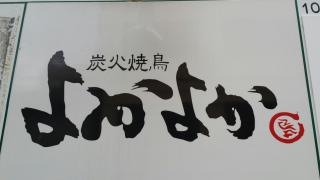 炭火焼鳥
よかよか
10